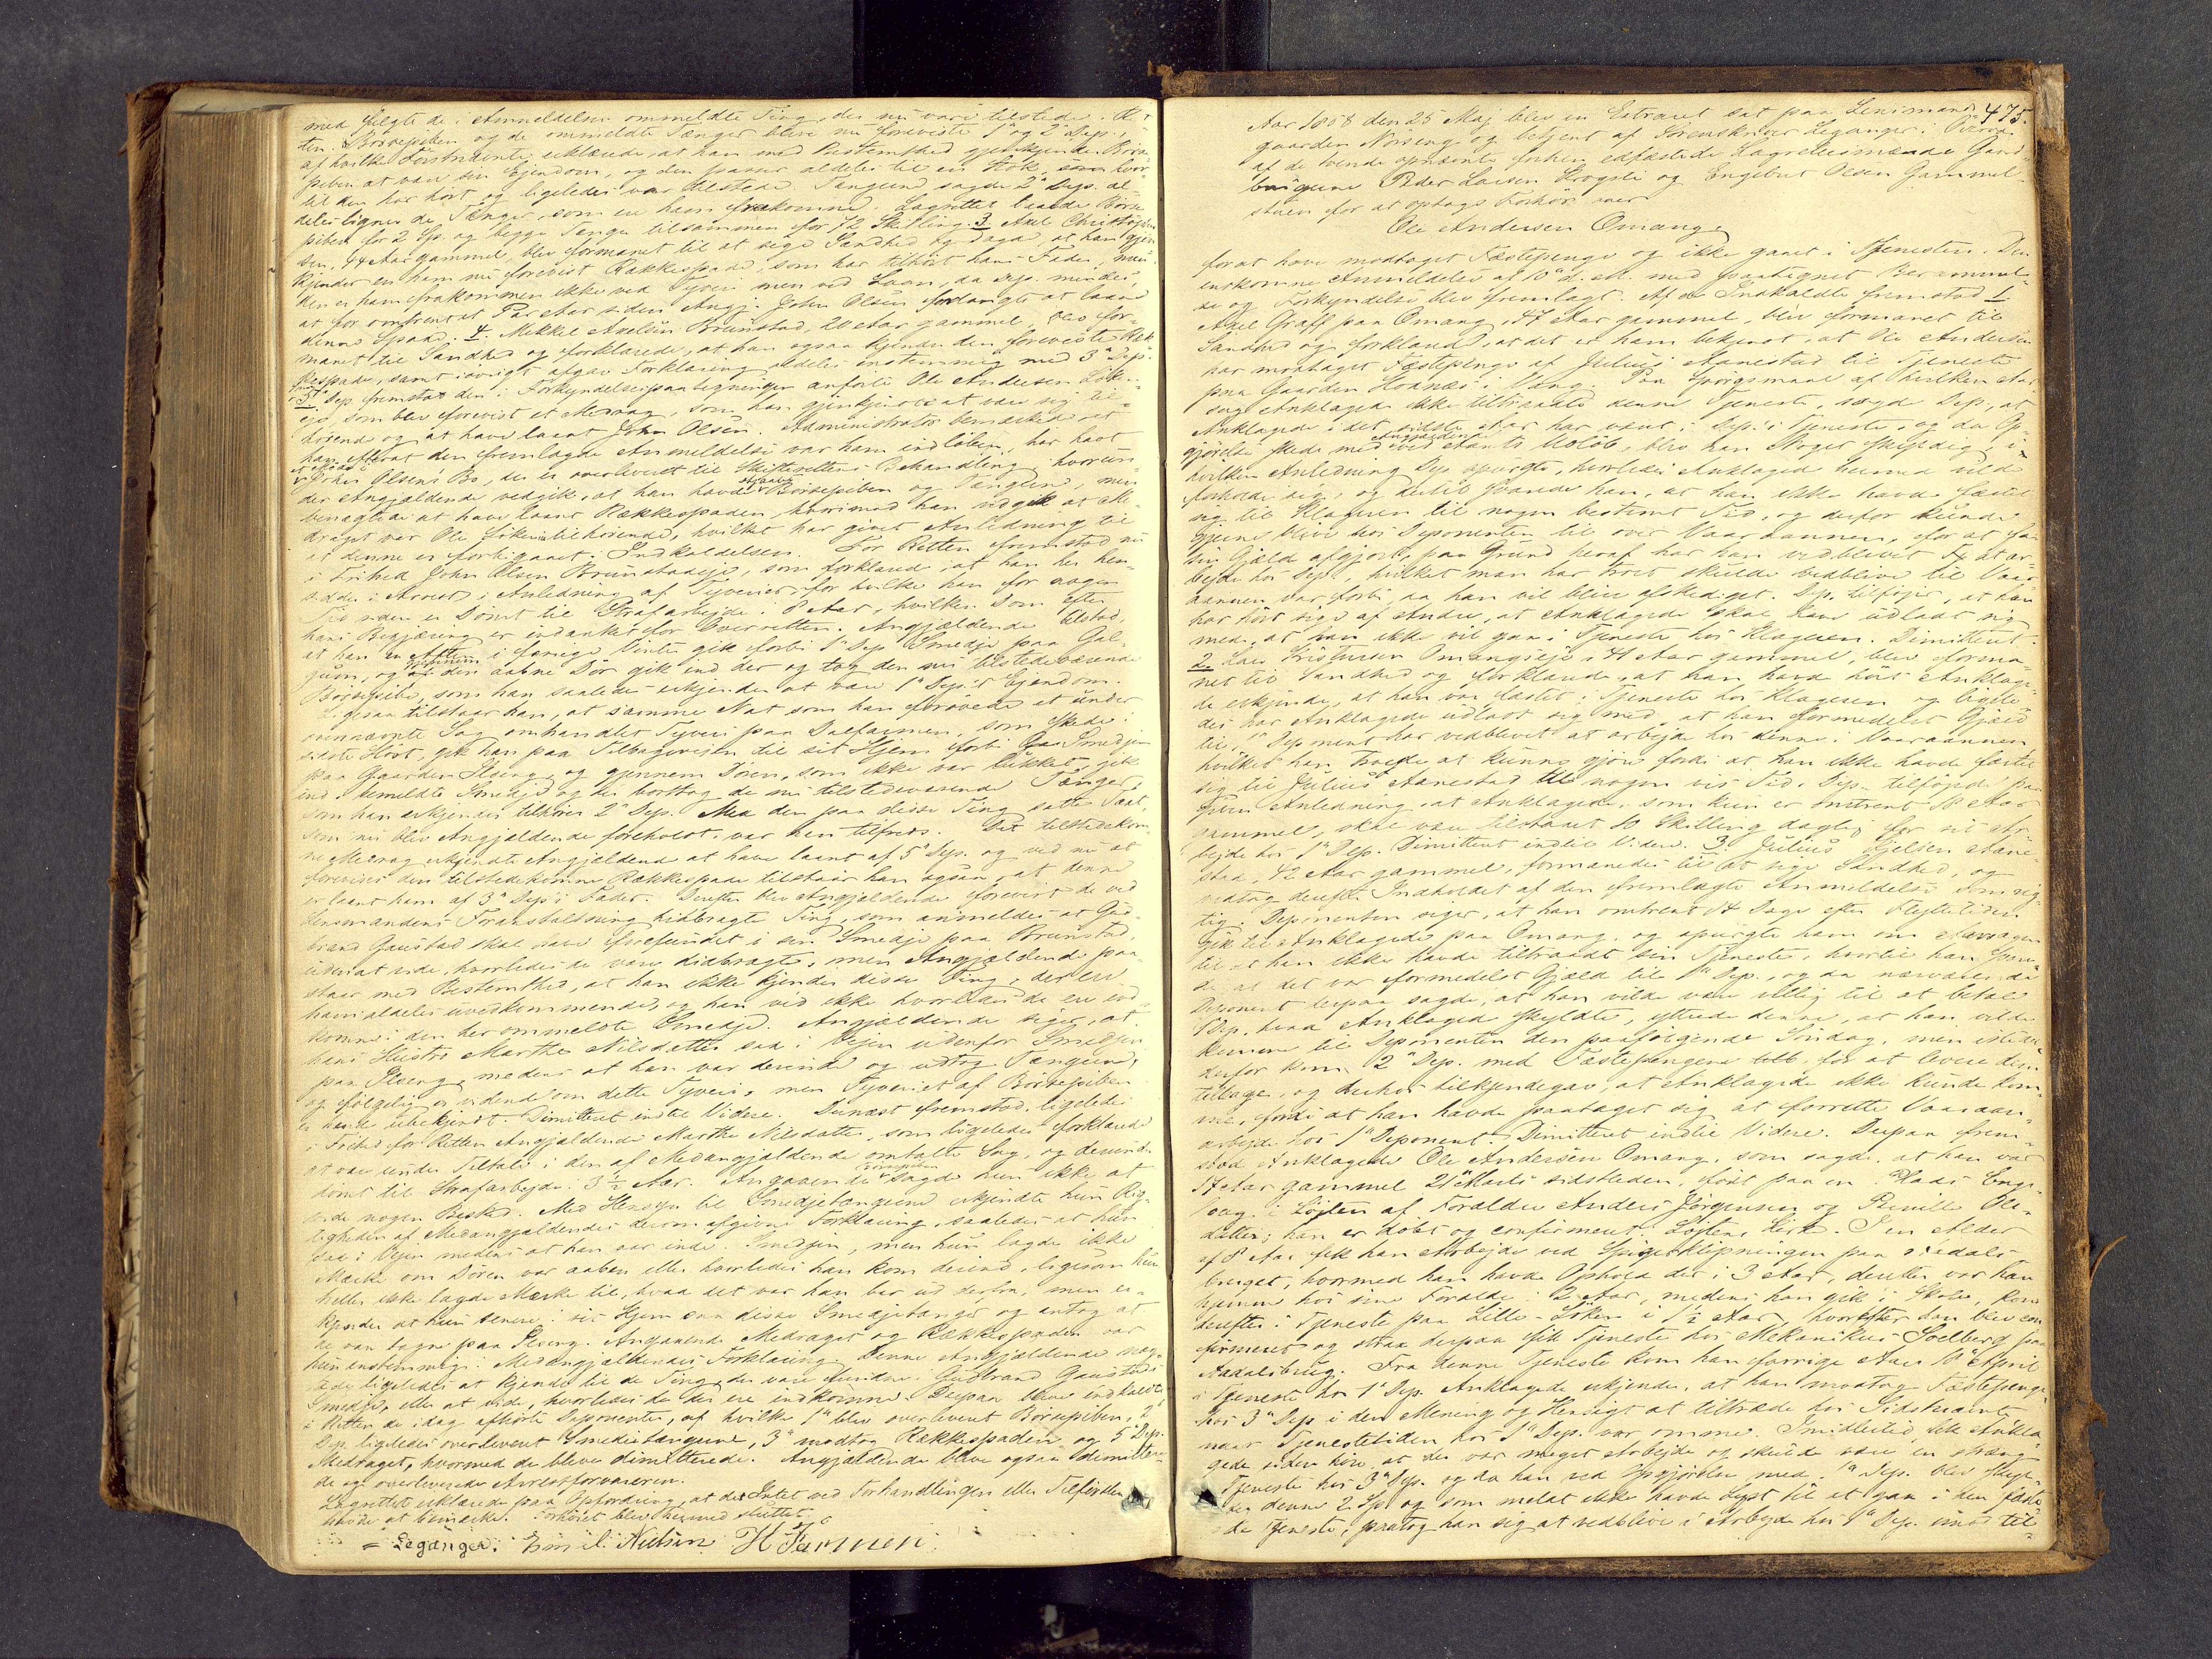 med fulgte de i Anmeldelsen ommeldte Ting, der nu vare tilstede. Ret
ten. Børsepiben og de ommeldte Tænger bleve nu foreviste 1ste og 2den Dep.,
af hvilke Førstnævnte erklærede, at han med Bestemthed gjenkjender Børse
piben at være sin Ejendom, og den passer aldeles til en Stok, som hvor
til den har hørt og ligeledes var tilstede. Tængerne sagde 2den Dep. al
deles ligner de Tænger, som ere ham frakomne. Lagrettet taxerede Børse
piben for 2 Sp. og begge Tænger tilsammen for 72 Skilling. 3. Axel Christophers
sen, 44 Aar gammel, blev formanet til at sige Sandhed og sagde, at han gjen
kjender en ham nu forevist Rakkespade, som har tilhørt hans Fader, men
den er ham frakommen ikke ved Tyveri men ved Laan, da Dep. mindes,
at for omtrent et Par Aar siden Angj. John Olsen forlangte at laane
denne Spade. 4. Mikkel Axelsen Brunstad, 20 Aar gammel, blev for-
manet til Sandhed og forklarede, at han ogsaa kjender den foreviste Rak
kespade, samt iøvrigt afgav Forklaring aldeles enstemmig med 3die Dep.
Som 5te Dep. fremstod den i Forkyndelsespaategningen anførte Ole Andersen Løken
eje som blev forevist et Medrag, som han gjenkjendte at være sig til-
hørende og at have laant John Olsen. Administrator bemærkede at
han, efterat den fremlagte Anmeldelse var ham indløben, har havt
John Olsens Bo, der er overleveret til Skifterettens Behandling, hvorun-
der Angjældende vedgik, at han havde stjaalet Børsepiben og Tængerne, men
benægtede at have laant Rakkespaden, hvorimod han vedgik at Me
draget var Ole Løken tilhørende, hvilket har givet Anledning til
at denne er fortegnet i Indkaldelsen. For Retten fremstod nu
i Frihed John Olsen Brunstadeje, som forklarede, at han her hen-
sidder i Arrest i Anledning af Tyverier, for hvilke han for nogen
Tid siden er dømt til Strafarbejde i 8 Aar, hvilken Dom efter
hans Begjæring er indanket for Overretten. Angjældende tilstod,
at han en Aften i forrige Vinter gik forbi 1ste Dep. Smedje paa Gul-
juen, og gjennem den aabne Dør gik ind der og tog den nu tilstedeværende
Børsepibe, som han saaledes erkjender at være 1ste Dep.s Ejendom.
Ligesaa tilstaar han, at samme Nat som han forøvede et under
ovennævnte Sag omhandlet Tyveri paa Dælfarmen, som skede i
sidste Høst, gik han paa Tilbagevejen til sit Hjem forbi Smedjen
paa Gaarden Ilseng, og gjennem Døren, som ikke var lukket, gik
ind i bemeldte Smedje og der borttog de nu tilstedeværende Tænger,
som han erkjender tilhører 2den Dep. Med den paa disse Ting satte Taxt,
som nu blev Angjældende foreholdt, var han tilfreds. Det tilstedekom
ne Medrag erkjendte Angjældende at have laant af 5te Dep. og ved nu at
forevises den tilstedekomne Rakkespade tilstaar han ogsaa, at denne
er laant ham af 3die Dep.s Fader. Derefter blev Angjældende forevist de ved
Lensmandens Foranstaltning hidbragte Ting, som anmeldes at Gud-
brand Gaustad skal have forefundet i sin Smedje paa Brunstad,
uden at vide, hvorledes de vare didbragte, men Angjældende paa-
staar med Bestemthed, at han ikke kjender disse Ting, der ere
ham aldeles uvedkommende, og han ved ikke hvorledes de ere ind-
komne i den her ommeldte Smedje. Angjældende siger, at
hans Hustro Marthe Nilsdatter sad i Vejen udenfor Smedjen
paa Ilseng, medens at han var derinde og udtog Tængerne,
og følgelig er vidende om dette Tyveri, men Tyveriet af Børsepiben
er hende ubekjendt. Dimitteret indtil Videre. Dernæst fremstod ligeledes
i Frihed for Retten Angjældende Marthe Nilsdatter, som ligeledes forklarede
at være under Tiltale i den af Medangjældende omtalte Sag, og derunder
dømt til Strafarbejde i 3 1/2 Aar. Angaaende Børsepiben sagde hun ikke at
vide nogen Besked. Med Hensyn til Smedjetængerne erkjendte hun Rig-
tigheden af Medangjældendes derom afgivne Forklaring, saaledes at hun
sad i Vejen medens at han var inde i Smedjen, men hun lagde ikke
Mærke om Døren var aaben eller hvorledes han kom derind, ligesom hun
heller ikke lagde Mærke til, hvad det var han bar ud derfra, men er-
kjender at hun senere i sit Hjem saa disse Smedjetænger og antog at
de vare tagne paa Ilseng. Angaaende Medraget og Rakkespaden var
hun enstemmig i Medangjældendes Forklaring. Denne Angjældende næg-
tede ligeledes at kjende til de Ting, der vare fundne i Gudbrand Gaustads
Smedje, eller at vide, hvorledes de der ere indkomne. Derpaa bleve indkaldte
i Retten de idag afhørte Deponenter, af hvilke 1ste blev overleveret Børsepiben, 2den
Dep. ligeledes overleveret Smedjetængerne, 3die modtog Rakkespaden og 5te Dep.
Medraget, hvormed de bleve dimitterede. Angjældende bleve ogsaa dimittere-
de og overleverede Arrestforvareren.
Lagrettet erklærede paa Opfordring, at de Intet ved Forhandlingen eller Tilførslen
havde at bemærke. Forhøret blev hermed sluttet.
Leganger. Emil Nielsen H Farmen
475.
Aar 1858 den 25 Maj blev en Extraret sat paa Lensmands
gaarden Nørseng og betjent af Sorenskriver Leganger i Overvær
af de tvende opnævnte forhen edfæstede Lagrettesmænd Gaard-
brugerne Peder Larsen Krogsti og Engebret Olsen Gammel-
stuen for at optage Forhør over
Ole Andersen Omang
for at have modtaget Fæstepenge og ikke gaaet i Tjenesten. Den
indkomne Anmeldelse af 10de d. M. med paategnet Berammel-
se og Forkyndelse blev fremlagt. Af de Indkaldte fremstod 1.
Axel Graff paa Omang, 47 Aar gammel, blev formanet til
Sandhed og forklarede, at det er ham bekjendt, at Ole Andersen
har modtaget Fæstepenge af Julius Aanestad til Tjeneste
paa Gaarden Hodnæs i Vang. Paa Spørgsmaal af hvilken Aar-
sag Anklagede ikke tiltraadte denne Tjeneste, sagde Dep., at
Anklagede i det sidste Aar har været i Dep.s Tjeneste, og da Op-
gjørelse skede med Angjældende ved Aarets Udløb, blev han Noget skyldig, i
hvilken Anledning Dep. spurgte, hvorledes Anklagede hermed vilde
forholde sig, og dertil svarede han, at han ikke havde fæstet
sig til Klageren til nogen bestemt Tid, og derfor kunde
gjerne blive hos Deponenten til over Vaaraannen, for at faa
sin Gjæld afgjort, paa Grund heraf har han vedblevet at ar-
bejde hos Dep., hvilket man har troet skulde vedblive til Vaar-
aannen var forbi, da han vil blive afskediget. Dep. tilføjer, at han
har hørt sige af Andre, at Anklagede skal have udladt sig
med, at han ikke vil gaa i Tjeneste hos Klageren. Dimitteret.
2. Lars Kristensen Omangseje, 41 Aar gammel, blev forma-
net til Sandhed og forklarede, at han havde hørt Anklage-
de erkjende, at han var fæstet i Tjeneste hos Klageren og ligele-
des har Anklagede udladt sig med, at han formedelst Gjæld
til 1ste Deponent har vedblevet at arbejde hos denne i Vaaraannen,
hvilket han troede at kunne gjøre fordi at han ikke havde fæstet
sig til Julius Aanestad til nogen vis Tid. Dep. tilføjede paa
given Anledning, at Anklagede, som kun er omtrent 18 Aar
gammel, skal være tilstaaet 10 Skilling daglig for sit Ar-
bejde hos 1ste Dep. Dimitteret indtil Videre. 3. Julius Ejelsen Aane-
stad, 42 Aar gammel, formanedes til at sige Sandhed, og
vedtog derefter Indholdet af den fremlagte Anmeldelse som rig-
tig. Deponenten siger, at han omtrent 14 Dage efter Flyttetiden
gik til Anklagede paa Omang og spurgte ham om Aarsagen
til at han ikke havde tiltraadt sin Tjeneste, hvortil han svare-
de at det var formedelst Gjæld til 1ste Dep., og da nærværende
Deponent derpaa sagde, at han vilde være villig til at betale
1ste Dep. hvad Anklagede skyldte, yttrede denne, at han vilde
komme til Deponenten den paafølgende Søndag, men istedet-
derfor kom 2den Dep. med Fæstepengene for at levere dem
tilbage, og derhos tilkjendegav, at Anklagede ikke kunde kom-
me, fordi at han havde paataget sig at forrette Vaaraans-
arbejde hos 1ste Deponent. Dimitteret indtil Videre. Derpaa frem-
stod Anklagede Ole Andersen Omang, som sagde, at han var
17 Aar gammel 21de Marts sidstleden, født paa en Plads Enge-
haug i Løjten af Forældre Anders Jørgensen og Pernille Ole-
datter; han er døbt og confirmeret i Løjtens Kirke. I en Alder
af 8 Aar fik han Arbejde ved Spigerklipningen paa Aadals-
bruget, hvormed han havde Ophold der i 3 Aar, derefter var han
hjemme hos sine Forældre i 2 Aar, medens han gik i Skole, kom
derefter i Tjeneste paa Lille-Løken i 1 1/2 Aar, hvorefter han blev con
firmeret og strax derpaa fik Tjeneste hos Mekanikus Soelberg paa
Aadalsbrug. Fra denne Tjeneste kom han forrige Aars April
i Tjeneste hos 1ste Dep. Anklagede erkjender, at han modtog Fæstepenge
hos 3die Dep. i den Mening og Hensigt at tiltræde hos Sidstnævnte
naar Tjenestetiden hos 1ste Dep. var omme. Imidlertid fik Ankla-
gede siden høre, at der var meget Arbejde og skulde være en stræng
Tjeneste hos 3die Dep. og da han ved Opgjørelse med 1ste Dep. blev skyl-
dig denne 2 Sp. og som meldt ikke havde Lyst til at gaa i den fæste-
de Tjeneste, paatog han sig at vedblive i Arbejde hos 1ste Dep. imod til-